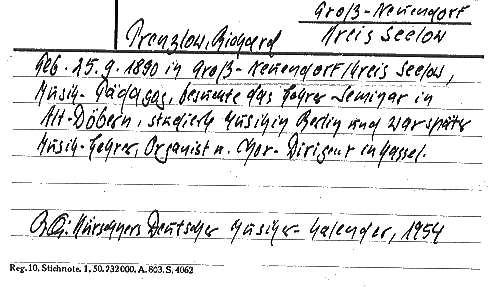 Groß-Neuendorf
Prenzlow, Richard Kreis Seelow
Geb. 25.9.1890 in Groß-Neuendorf/Kreis Seelow,
Musik-Pädagog, besuchte das Lehrer-Seminar in
Alt-Döbern, studierte Musik in Berlin und war später
Musik-Lehrer, Organist u. Chor-Dirigent in Kassel.
Kürschners Deutscher Musiker-Kalender, 1954
Reg. 10. Stichnote. 1, 50. 232000. A. 803. S. 4062